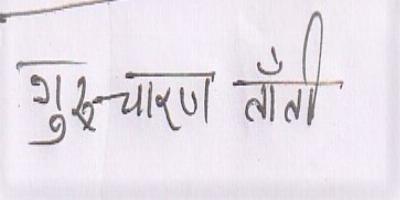 गुरूचारण ताँती